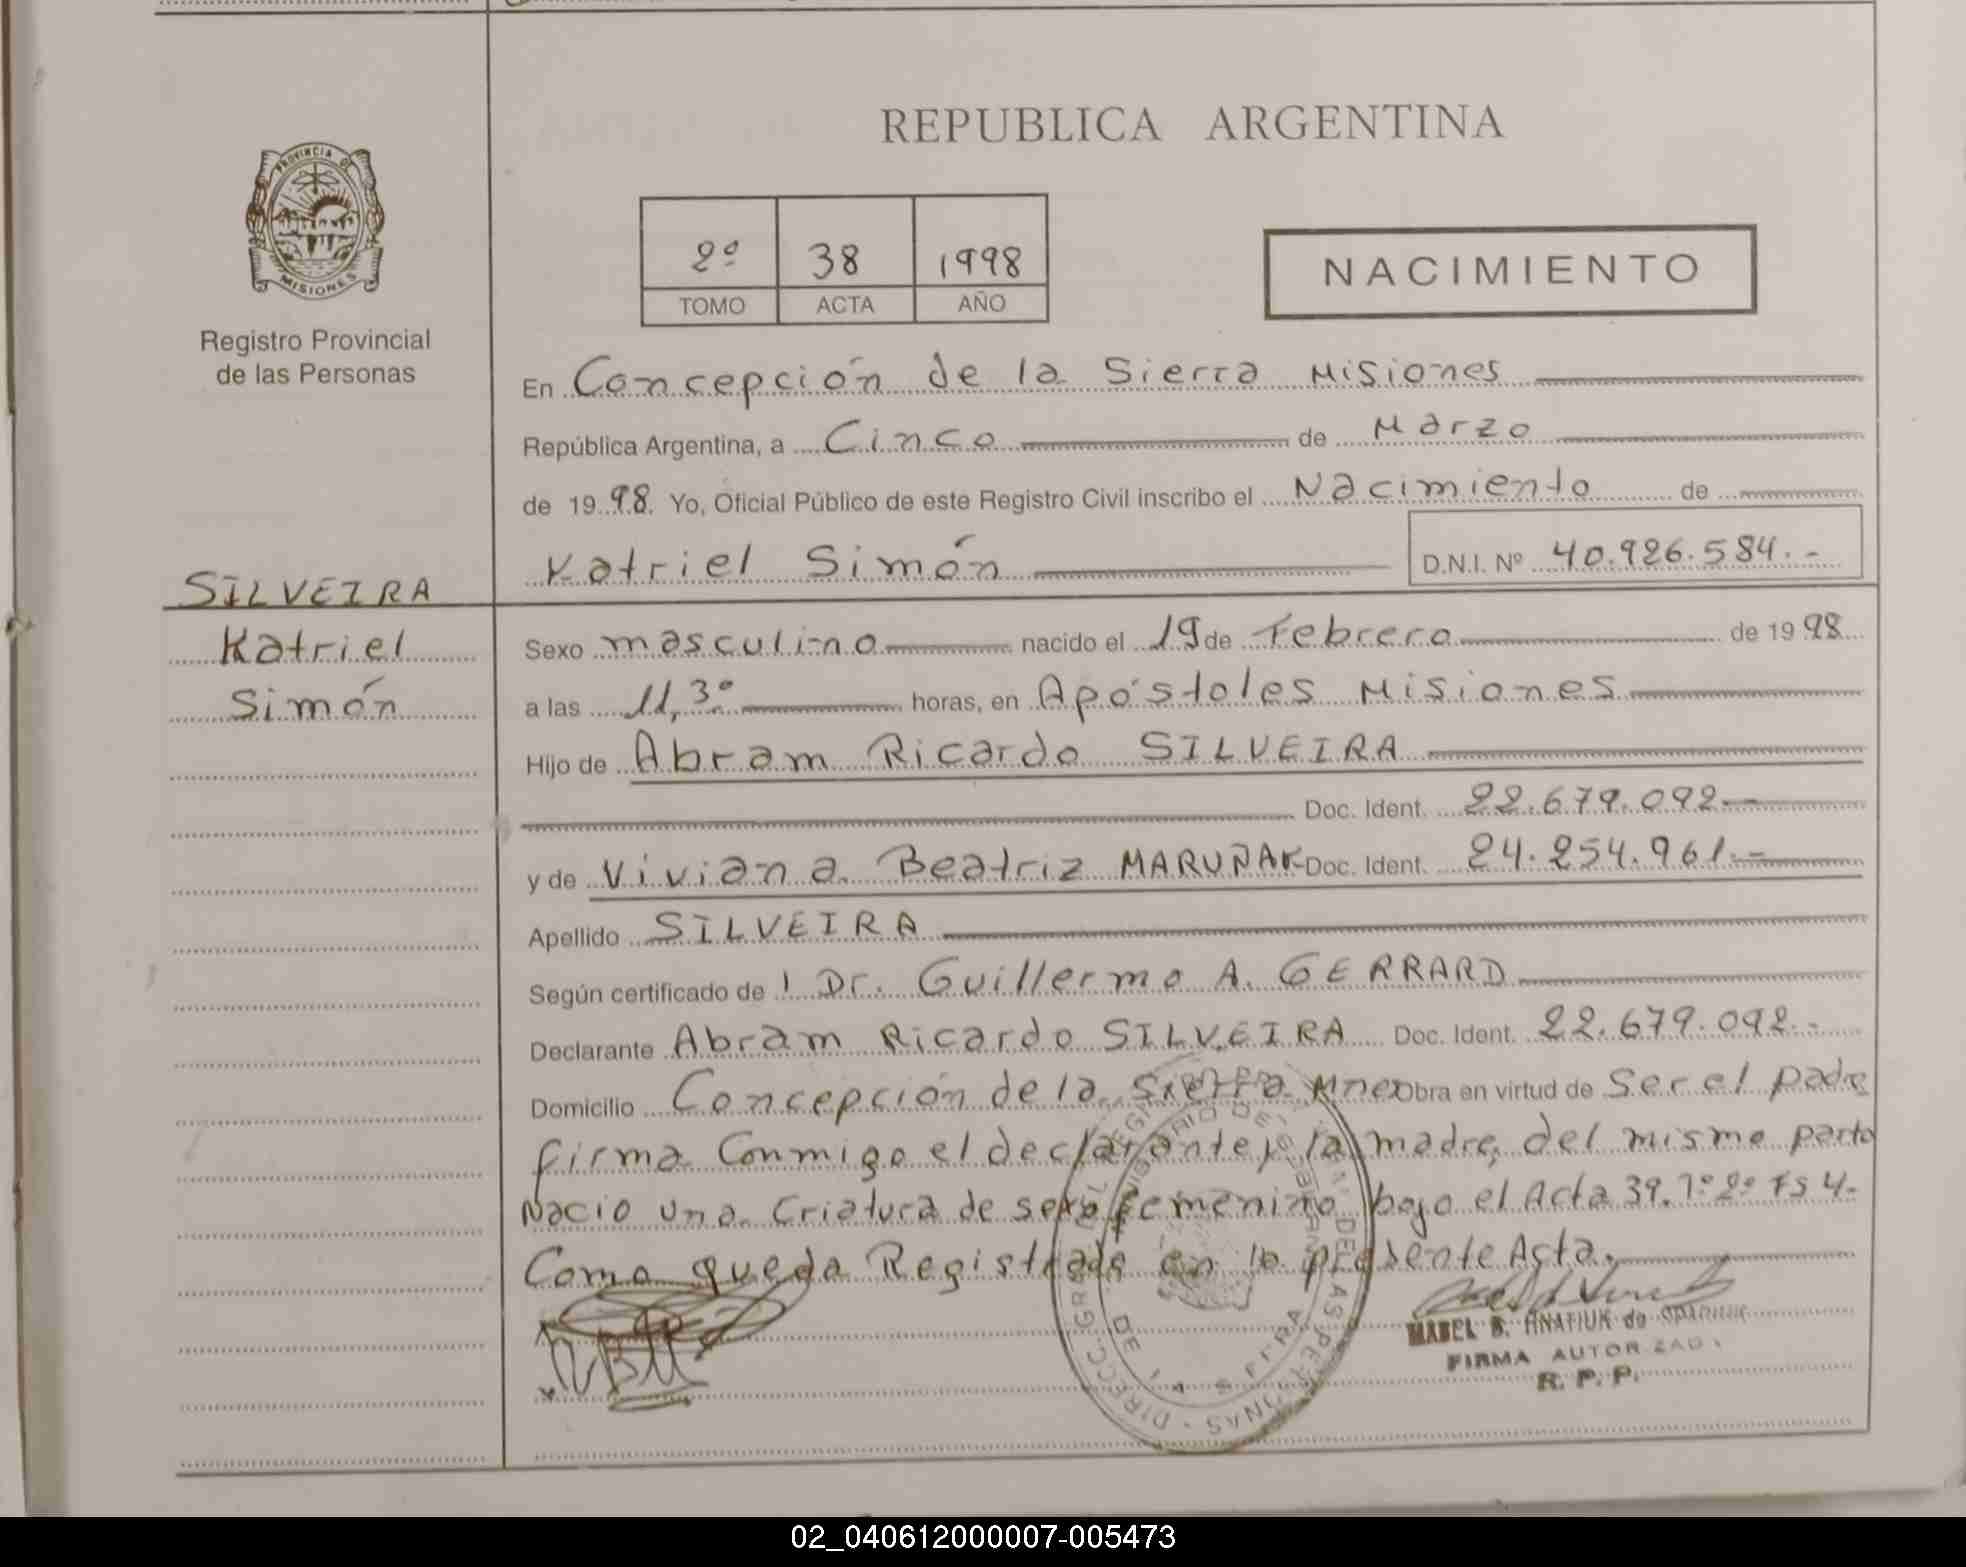 REPUBLICA ARGENTINA
PROVINCIA DE
MISIONES
Registro Provincial
de las Personas
2º 38 1998
TOMO ACTA AÑO
NACIMIENTO
En Concepción de la Sierra Misiones
República Argentina, a Cinco de Marzo
de 1998 Yo, Oficial Público de este Registro Civil inscribo el Nacimiento de
Katriel Simón D.N.I. Nº 40.926.584.-
SILVEIRA
Katriel
Simón
Sexo masculino nacido el 19 de Febrero de 1998
a las 11,3º horas, en Apóstoles Misiones
Hijo de Abram Ricardo SILVEIRA
Doc. Ident. 22.679.092-
y de Viviana Beatriz MARUÑAK Doc. Ident. 24.254.961.-
Apellido SILVEIRA
Según certificado de l Dr. Guillermo A. GERRARD
Declarante Abram Ricardo SILVEIRA Doc. Ident. 22.679.092.-
Domicilio Concepción de la Sierra Mnes Obra en virtud de Ser el padre
firma Conmigo el declarante y la madre, del mismo parto
Nacio una Criatura de sexo femenino bajo el Acta 39. Tº 2º Fs 4-
Como queda Registrada en la presente Acta.
MABEL B. ANATIUK de
FIRMA AUTORIZADA
R. P. P.
02_040612000007-005473